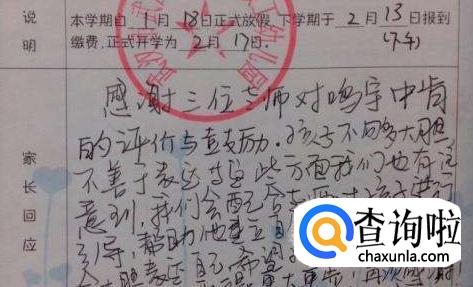 说明
本学期自1月18日正式放假,下学期于2月13日报到
缴费,正式开学为2月17日.
(下午)
幼儿园
家长回应
感谢三位老师对鸣宇中肯
的评价与鼓励.孩子不够大胆
不善于表达等这些方面我们也有注
意到,我们会配合老师对孩子进行
引导,帮助他建立自
大胆表达
再次感谢!
查询啦
chaxunla.com